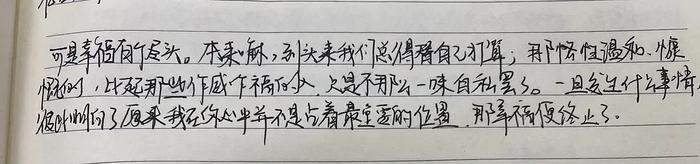 可是幸福有个尽头。本来嘛,到头来我们总得替自己打算;那些性温和、慷
慨的,比起那些作威作福的人,只是不那么一味自私罢了。一旦发生什么事情,
彼此明白了原来我在你心中并不是占着最重要的位置,那幸福便终止了。